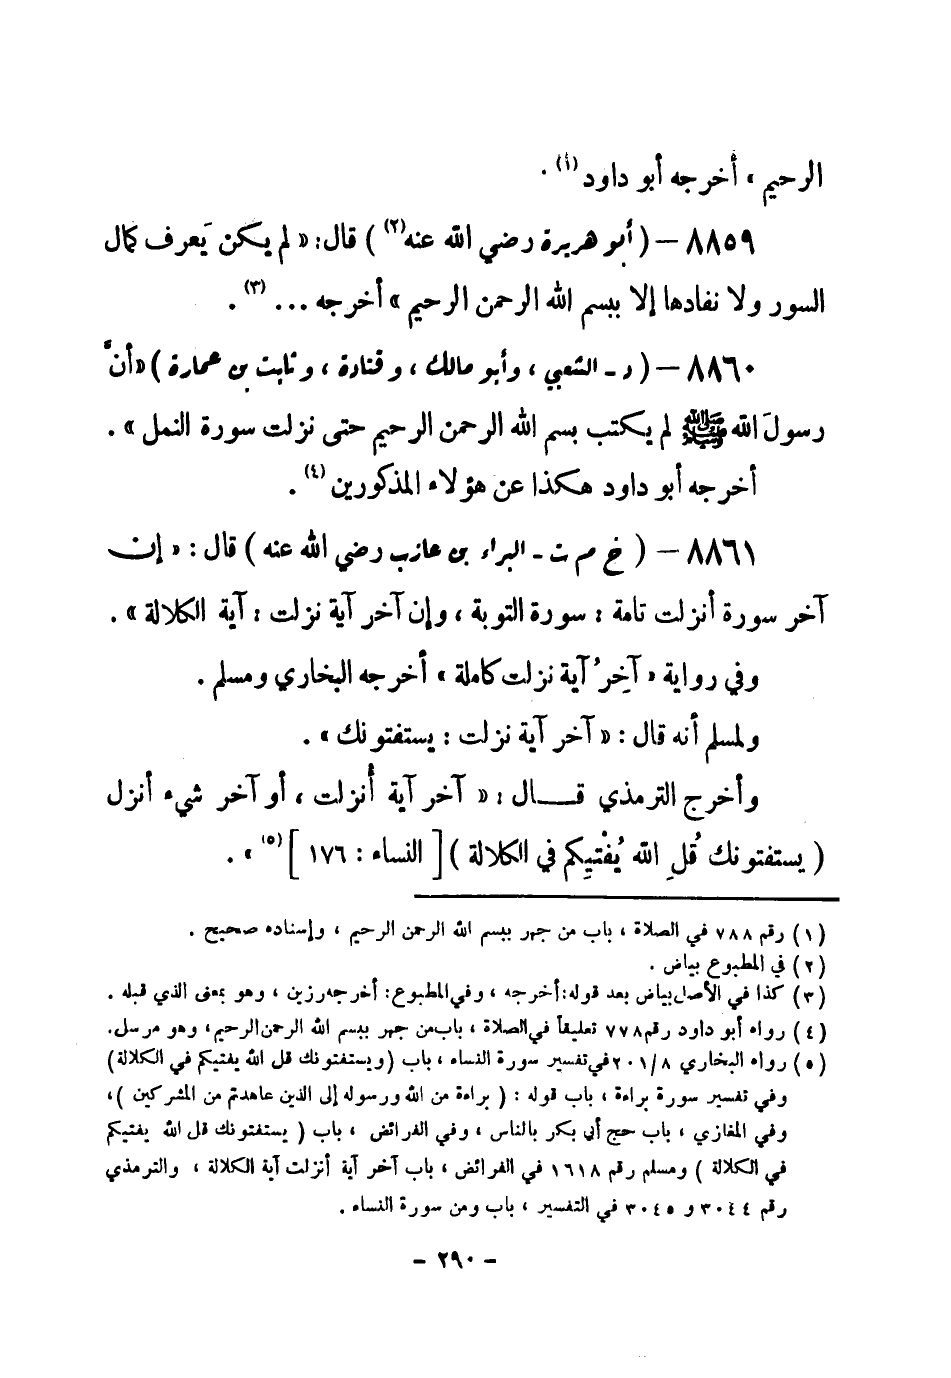 الرحيم » أخرجه أبو داود (١) .
٨٨٥٩ – ( أبو هريرة رضي الله عنه (٢) ) قال : « لم يكن يَعرف كمال
السور ولا نفادها إلا ببسم الله الرحمن الرحيم » أخرجه ... (٣) .
٨٨٦٠ – ( د – الشعبي ، وأبو مالك ، وقتادة ، وثابت بن عمارة ) « أنَّ
رسولَ الله ﷺ لم يكتب بسم الله الرحمن الرحيم حتى نزلت سورة النمل » .
أخرجه أبو داود هكذا عن هؤلاء المذكورين (٤) .
٨٨٦١ – ( خ م ت – البراء بن عازب رضي الله عنه ) قال : « إن
آخر سورة أنزلت تامة : سورة التوبة ، وإن آخر آية نزلت : آية الكلالة » .
وفي رواية « آخِرُ آية نزلت كاملة » أخرجه البخاري ومسلم .
ولمسلم أنه قال : « آخر آية نزلت : يستفتونك » .
وأخرج الترمذي قـــال : « آخر آية أُنزلت ، أو آخر شيء أنزل
( يستفتونك قُلِ الله يُفْتيِكم في الكلالة ) [ النساء : ١٧٦ ] (٥) » .
(١) رقم ٧٨٨ في الصلاة ، باب من جهر ببسم الله الرحمن الرحيم ، وإسناده صحيح .
(٢) في المطبوع بياض .
(٣) كذا في الأصل بياض بعد قوله : أخرجه ، وفي المطبوع : أخرجه رزين ، وهو بمعنى الذي قبله .
(٤) رواه أبو داود رقم ٧٧٨ تعليقاً في الصلاة ، باب من جهر ببسم الله الرحمن الرحيم ، وهو مرسل .
(٥) رواه البخاري ٨/٢٠١ في تفسير سورة النساء ، باب ( ويستفتونك قل الله يفتيكم في الكلالة )
وفي تفسير سورة براءة ، باب قوله : ( براءة من الله ورسوله إلى الذين عاهدتم من المشركين ) ،
وفي المغازي ، باب حج أبي بكر بالناس ، وفي الفرائض ، باب ( يستفتونك قل الله يفتيكم
في الكلالة ) ومسلم رقم ١٦١٨ في الفرائض ، باب آخر آية أنزلت آية الكلالة ، والترمذي
رقم ٣٠٤٤ و ٣٠٤٥ في التفسير ، باب ومن سورة النساء .
– ٢٩٠ –